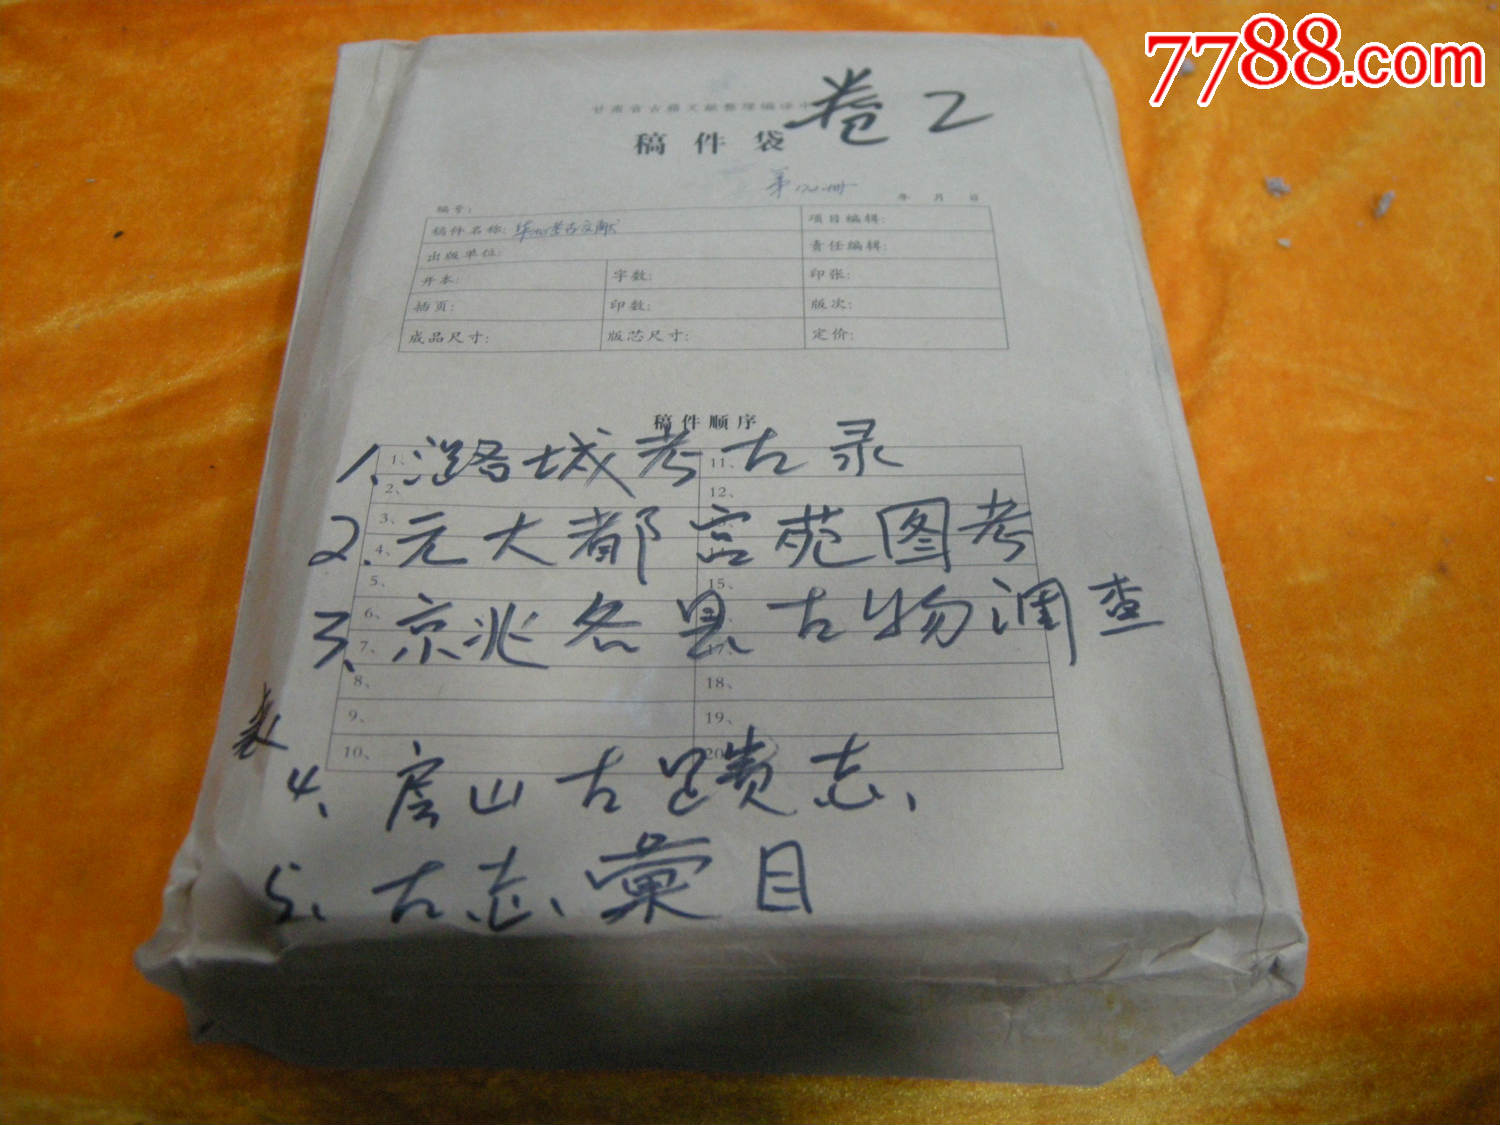 7788.com
甘肃省古籍文献整理编译中
卷2
稿件袋
第 册
年 月 日
编号:
稿件名称: 华北考古文献 项目编辑:
出版单位: 责任编辑:
开本: 字数: 印张:
插页: 印数: 版次:
成品尺寸: 版芯尺寸: 定价:
稿件顺序
1、 11、
2、 12、
3、
4、
5、 15、
6、
7、 17、
8、 18、
9、 19、
10、 20
1、潞城考古录
2、元大都宫苑图考
3、京兆各县古物调查
表
4、房山古蹟志、
5、古志汇目